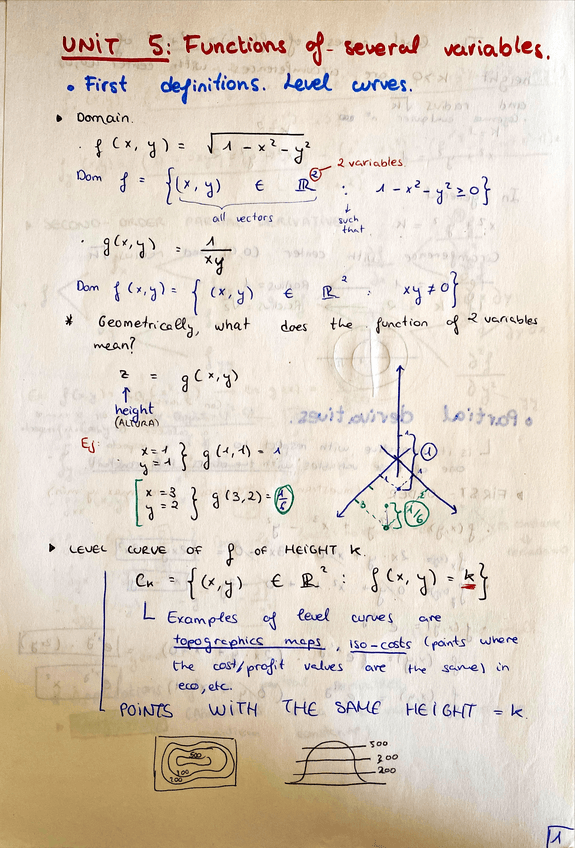 UNIT 5: Functions of several variables.
• First definitions. Level curves.
▸ Domain.
· f(x, y) = √(1 - x² - y²)
2 variables
Dom f = {(x, y) ∈ ℝ² : 1 - x² - y² ≥ 0}
all vectors
↓ such that
· g(x, y) = 1/xy
Dom f(x, y) = {(x, y) ∈ ℝ² : xy ≠ 0}
* Geometrically, what does the function of 2 variables
mean?
z = g(x, y)
↑
height
(ALTURA)
Ej:
x = 1
y = 1 } g(1, 1) = 1
[ x = 3
y = 2 } g(3, 2) = 1/6
1
1
1
2
3
} 1
} 1/6
▸ LEVEL CURVE OF f OF HEIGHT K.
Cₖ = {(x, y) ∈ ℝ² : f(x, y) = k}
Examples of level curves are
topographics maps, iso-costs (points where
the cost/profit values are the same) in
eco, etc.
POINTS WITH THE SAME HEIGHT = k.
500
300
200
500
300
200
1